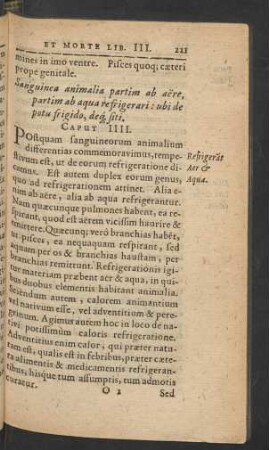 ET MORTE LIB. III. 211
mines in imo ventre. Pisces quoq; cæteri
prope genitale.
Sanguinea animalia partim ab aëre,
partim ab aqua refrigerari: ubi de
potu frigido, deq́; siti.
CAPUT IIII.
POstquam sanguineorum animalium
differentias commemoravimus, tempe-
stivum est, ut de eorum refrigeratione di-
camus. Est autem duplex eorum genus,
quo ad refrigerationem attinet. Alia e-
nim ab aëre, alia ab aqua refrigerantur.
Nam quæcunque pulmones habent, ea re-
spirant, quod est aërem vicissim haurire &
remittere. Quæcunq; verò branchias habēt,
ut pisces, ea nequaquam respirant, sed
aquam per os & branchias haustam, per
branchias remittunt. Refrigerationis igi-
tur materiam præbent aër & aqua, in qui-
bus duobus elementis habitant animalia.
Sciendum autem, calorem animantium
vel nativum esse, vel adventitium & pere-
grinum. Agimus autem hoc in loco de na-
tivi potissimùm caloris refrigeratione.
Adventitius enim calor, qui præter natu-
ram est, qualis est in febribus, præter cæte-
ra alimentis & medicamentis refrigeran-
tibus, hisque tum assumptis, tum admotis
curatur.
O 2 Sed
Refrigerāt
Aër &
Aqua.